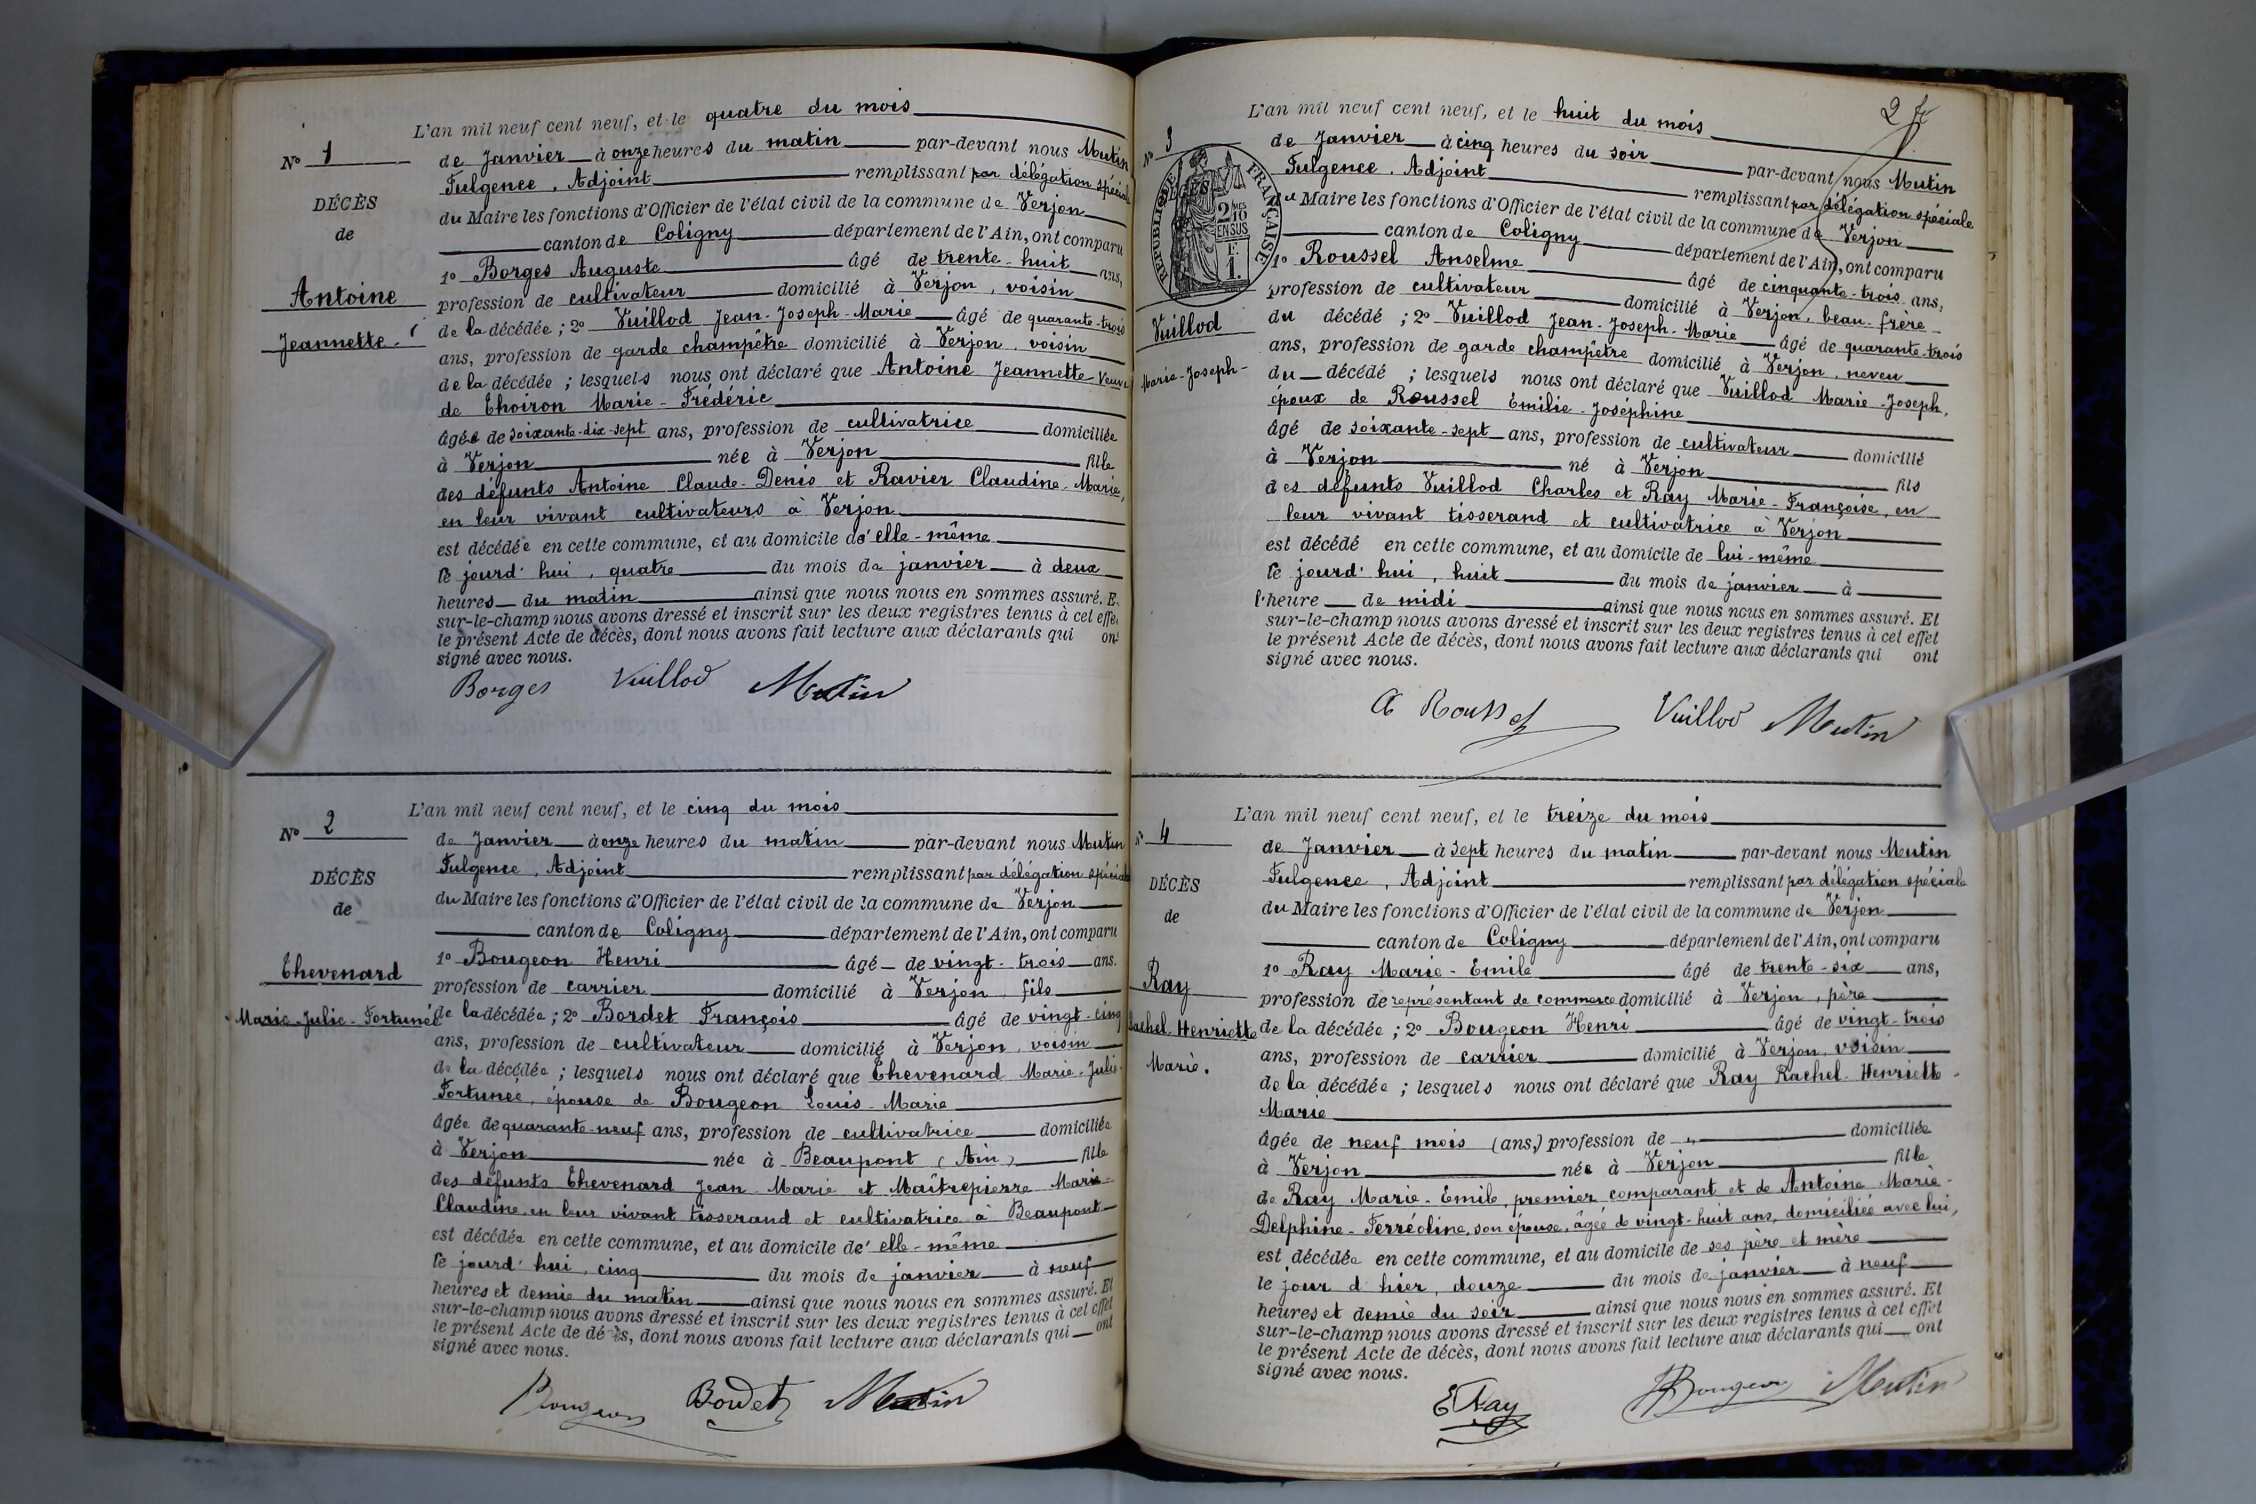 N° 1
DÉCÈS
de
Antoine
Jeannette.
L'an mil neuf cent neuf, et le quatre du mois
de Janvier à onze heures du matin par-devant nous Mutin
Fulgence, Adjoint remplissant par délégation spéciale
du Maire les fonctions d'Officier de l'état civil de la commune de Verjon
canton de Coligny département de l'Ain, ont comparu
1° Borges Auguste âgé de trente-huit ans,
profession de cultivateur domicilié à Verjon, voisin
de la décédée ; 2° Vuillod Jean-Joseph-Marie âgé de quarante-trois
ans, profession de garde champêtre domicilié à Verjon, voisin
de la décédée ; lesquels nous ont déclaré que Antoine Jeannette veuve
de Thoiron Marie-Frédéric
âgée de soixante-dix-sept ans, profession de cultivatrice domiciliée
à Verjon née à Verjon fille
des défunts Antoine Claude-Denis et Ravier Claudine-Marie,
en leur vivant cultivateurs à Verjon
est décédée en cette commune, et au domicile d'elle-même
le jourd'hui, quatre du mois de janvier à deux
heures du matin ainsi que nous nous en sommes assuré. E
sur-le-champ nous avons dressé et inscrit sur les deux registres tenus à cet effe
le présent Acte de décès, dont nous avons fait lecture aux déclarants qui on
signé avec nous.
Borges Vuillod Mutin
N° 2
DÉCÈS
de
Thevenard
Marie-Julie-Fortunée
L'an mil neuf cent neuf, et le cinq du mois
de Janvier à onze heures du matin par-devant nous Mutin
Fulgence, Adjoint remplissant par délégation spéciale
du Maire les fonctions d'Officier de l'état civil de la commune de Verjon
canton de Coligny département de l'Ain, ont comparu
1° Bougeon Henri âgé de vingt-trois ans.
profession de carrier domicilié à Verjon, fils
de la décédée ; 2° Bordet François âgé de vingt-cinq
ans, profession de cultivateur domicilié à Verjon, voisin
de la décédée ; lesquels nous ont déclaré que Thevenard Marie-Julie-
Fortunée, épouse de Bougeon Louis-Marie
âgée de quarante-neuf ans, profession de cultivatrice domiciliée
à Verjon née à Beaupont (Ain) fille
des défunts Thevenard Jean Marie et Maîtrepierre Marie-
Claudine en leur vivant tisserand et cultivatrice à Beaupont
est décédée en cette commune, et au domicile d'elle-même
le jourd'hui, cinq du mois de janvier à neuf
heures et demie du matin ainsi que nous nous en sommes assuré. Et
sur-le-champ nous avons dressé et inscrit sur les deux registres tenus à cet effet
le présent Acte de décès, dont nous avons fait lecture aux déclarants qui ont
signé avec nous.
Bougeon Bordet Mutin
2
N° 3
RÉPUBLIQUE FRANÇAISE
2 MES
10
EN SUS
F.
1.
Vuillod
Marie-Joseph-
L'an mil neuf cent neuf, et le huit du mois
de Janvier à cinq heures du soir par-devant nous Mutin
Fulgence, Adjoint remplissant par délégation spéciale
du Maire les fonctions d'Officier de l'état civil de la commune de Verjon
canton de Coligny département de l'Ain, ont comparu
1° Roussel Anselme âgé de cinquante-trois ans,
profession de cultivateur domicilié à Verjon, beau-frère
du décédé ; 2° Vuillod Jean-Joseph-Marie âgé de quarante-trois
ans, profession de garde champêtre domicilié à Verjon, neveu
du décédé ; lesquels nous ont déclaré que Vuillod Marie-Joseph,
époux de Roussel Émilie-Joséphine
âgé de soixante-sept ans, profession de cultivateur domicilié
à Verjon né à Verjon fils
des défunts Vuillod Charles et Ray Marie-Françoise, en
leur vivant tisserand et cultivatrice à Verjon
est décédé en cette commune, et au domicile de lui-même
le jourd'hui, huit du mois de janvier à
l'heure de midi ainsi que nous nous en sommes assuré. Et
sur-le-champ nous avons dressé et inscrit sur les deux registres tenus à cet effet
le présent Acte de décès, dont nous avons fait lecture aux déclarants qui ont
signé avec nous.
A Roussel Vuillod Mutin
N° 4
DÉCÈS
de
Ray
Rachel-Henriette
Marie.
L'an mil neuf cent neuf, et le treize du mois
de Janvier à sept heures du matin par-devant nous Mutin
Fulgence, Adjoint remplissant par délégation spéciale
du Maire les fonctions d'Officier de l'état civil de la commune de Verjon
canton de Coligny département de l'Ain, ont comparu
1° Ray Marie-Emile âgé de trente-six ans,
profession de représentant de commerce domicilié à Verjon, père
de la décédée ; 2° Bougeon Henri âgé de vingt-trois
ans, profession de carrier domicilié à Verjon, voisin
de la décédée ; lesquels nous ont déclaré que Ray Rachel-Henriette-
Marie
âgée de neuf mois (ans,) profession de " domiciliée
à Verjon née à Verjon fille
de Ray Marie-Emile, premier comparant et de Antoine Marie-
Delphine-Ferréoline, son épouse, âgée de vingt-huit ans, domiciliée avec lui,
est décédée en cette commune, et au domicile de ses père et mère
le jour d'hier, douze du mois de janvier à neuf
heures et demie du soir ainsi que nous nous en sommes assuré. Et
sur-le-champ nous avons dressé et inscrit sur les deux registres tenus à cet effet
le présent Acte de décès, dont nous avons fait lecture aux déclarants qui ont
signé avec nous.
E Ray HBougeon Mutin